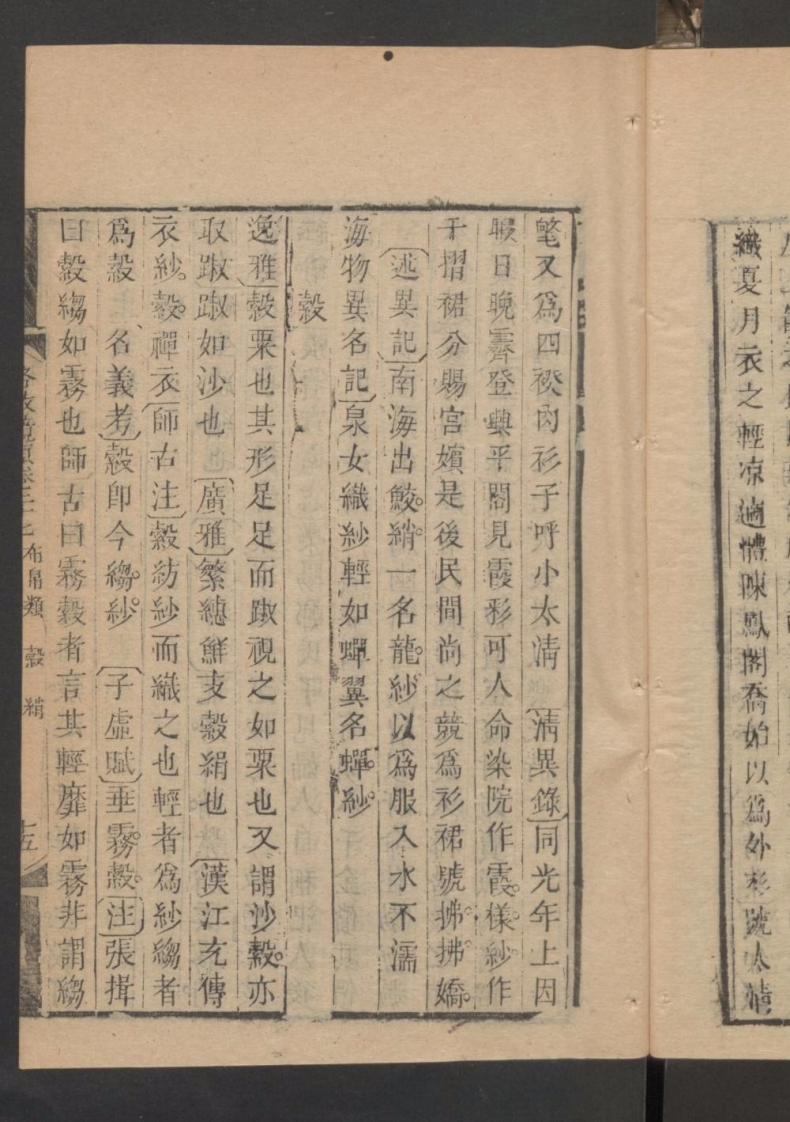 織夏月衣之輕凉適體陳鳳閣喬始以爲外衫號太清
氅又爲四䙆肉衫子呼小太清〔清異錄〕同光年上因
暇日晚霽登興平閣見霞彩可人命染院作霞樣紗作
千摺裙分賜宮嬪是後民間尚之競爲衫裙號拂拂嬌
〔述異記〕南海出鮫綃一名龍紗以爲服入水不濡
海物異名記〕泉女織紗輕如蟬翼名蟬紗
縠
逸雅〕縠粟也其形足足而踧視之如粟也又謂沙縠亦
取踧踧如沙也〔廣雅〕繁總鮮支縠絹也〔漢江充傳
衣紗縠襌衣〔師古注〕縠紡紗而織之也輕者爲紗縐者
爲縠　名義考〕縠卽今縐紗〔子虛賦〕垂霧縠〔注〕張揖
曰縠縐如霧也師古曰霧縠者言其輕靡如霧非謂縐
布帛類　縠　綃　十五